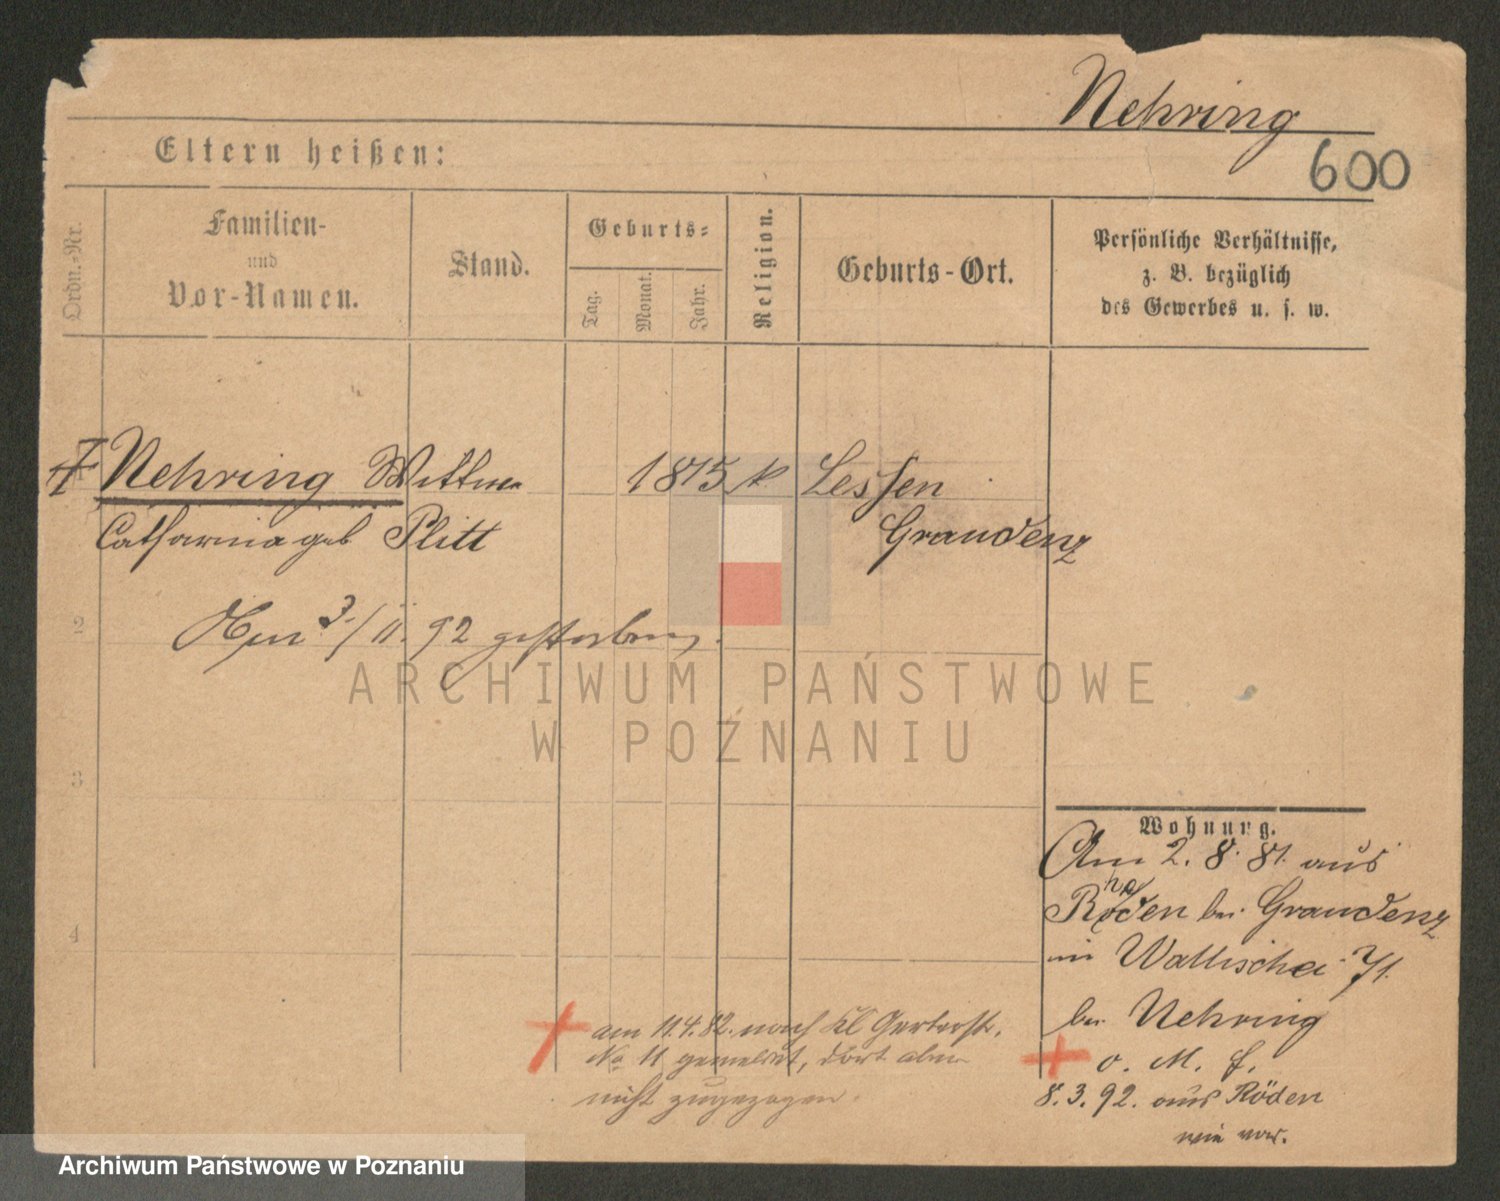 Nehring
600
Eltern heißen:
Ordn.-Nr.
Familien-
und
Vor-Namen.
Stand.
Geburts-
Tag.
Monat.
Jahr.
Religion.
Geburts-Ort.
Persönliche Verhältnisse,
z. B. bezüglich
des Gewerbes u. s. w.
Nehring Wittwe 1815 k Lessen
Catharina geb Plitt Graudenz
2
3/11. 92 gestorben.
ARCHIWUM PAŃSTWOWE
W POZNANIU
3
Wohnung.
Am 2. 8. 81. aus
Röden bei Graudenz
in Wallischei 71.
bei Nehring
4
am 11.4.82. nach Kl Gerberstr.
No 11 gemeldet, dort aber
nicht zugezogen.
o. M. f.
8.3.92. aus Röden
wie vor.
Archiwum Państwowe w Poznaniu